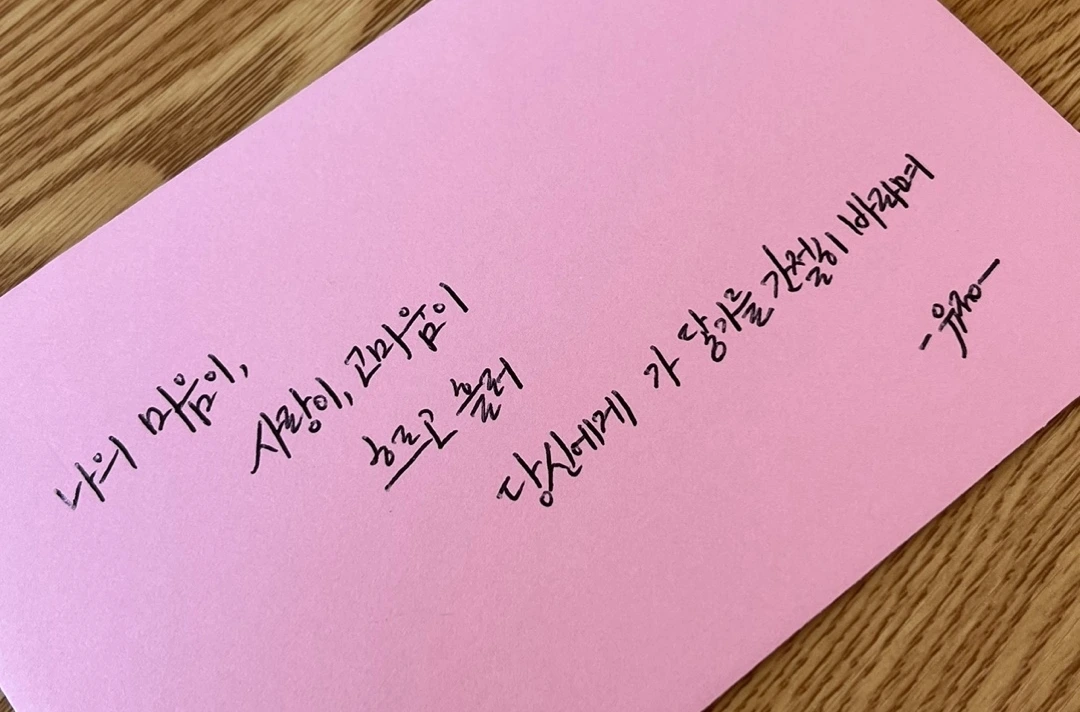 나의 마음이,
사랑이, 고마움이
흐르고 흘러
당신에게 가 닿기를 간절히 바라며